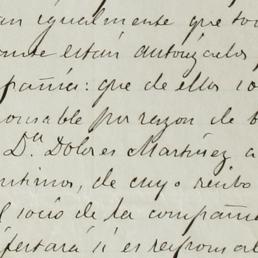 an igualmente que to
onte están autorizados
pañía: que de ellos so
onsable por razon de
Dª Dolores Martinez a
ntimos, de cuyo recibo
l socio de la compañia
fertará si es